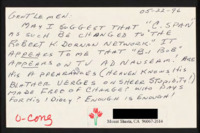 05-22-96
Gentlemen:
May I suggest that "C-SPAN"
as such be changed to the
Robert K. Dornan Network. It
appears to me that "B-1 Bob"
appears on TV ad nauseam! Are
his appearances (Heaven knows his
blather verges on sheer stupidity!)
made free of charge? Who pays
for his 1 day? Enough is enough!
U-Cong
Mount Shasta, CA 96067